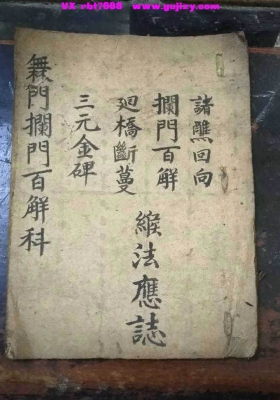 VX rbt7086 www.gujizy.com
諸醮回向
攔門百解
迴橋斷蔓
三元金碑
緱法應誌
無門攔門百解科